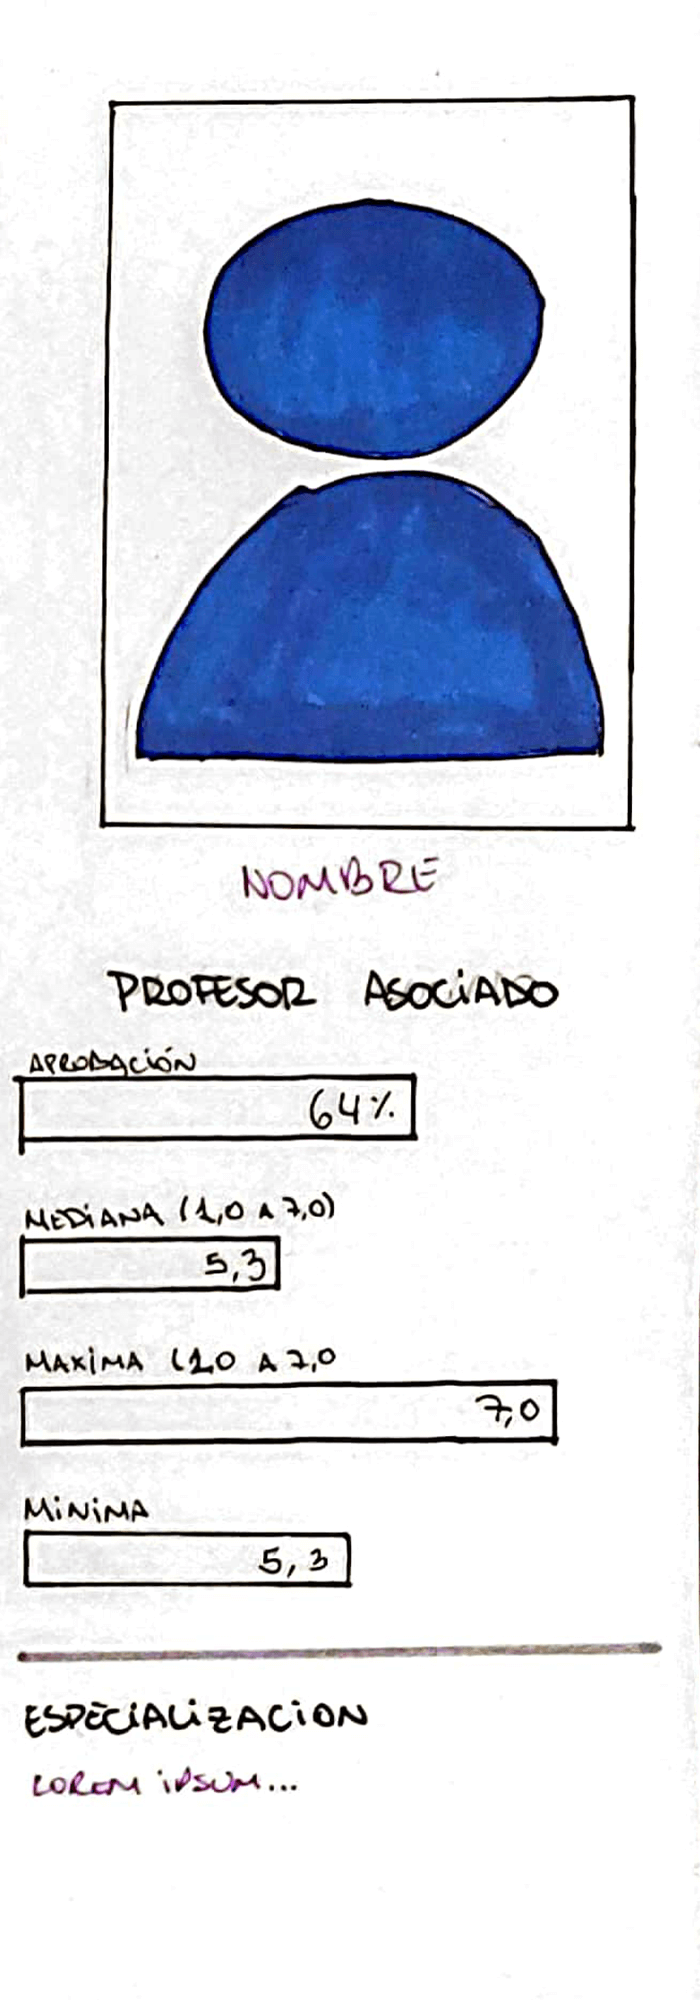 NOMBRE
PROFESOR ASOCIADO
APROBACIÓN
64%
MEDIANA (1,0 A 7,0)
5,3
MAXIMA (1,0 A 7,0
7,0
MINIMA
5,3
ESPECIALIZACION
LOREM IPSUM...